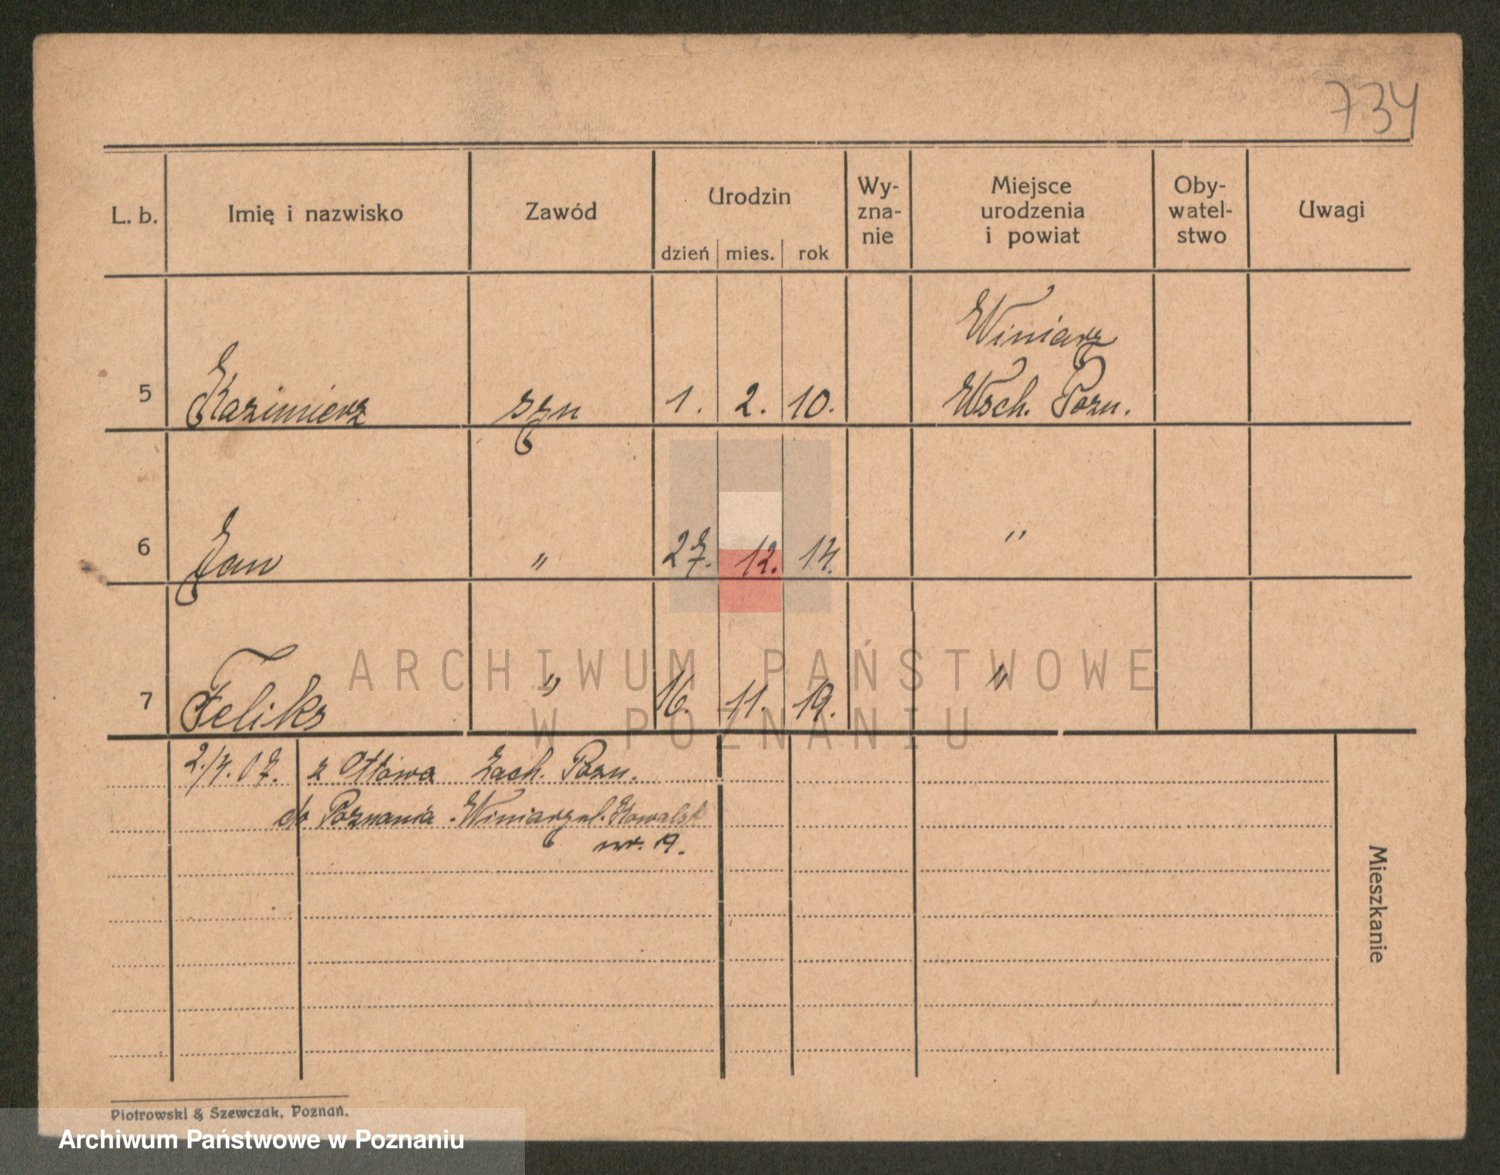 734
L. b. Imię i nazwisko Zawód Urodzin dzień mies. rok Wy-zna-nie Miejsce urodzenia i powiat Oby-watel-stwo Uwagi
Winiarz
5 Kazimierz syn 1. 2. 10. Wsch. Pozn.
6 Jan " 27. 12. 14. "
7 Feliks " 16. 11. 19. "
ARCHIWUM PAŃSTWOWE
W POZNANIU
2./4. 07. z Zach. Pozn.
do Poznania - Winiary ul. Kowalsk
nr. 19.
Mieszkanie
Piotrowski & Szewczak, Poznań.
Archiwum Państwowe w Poznaniu